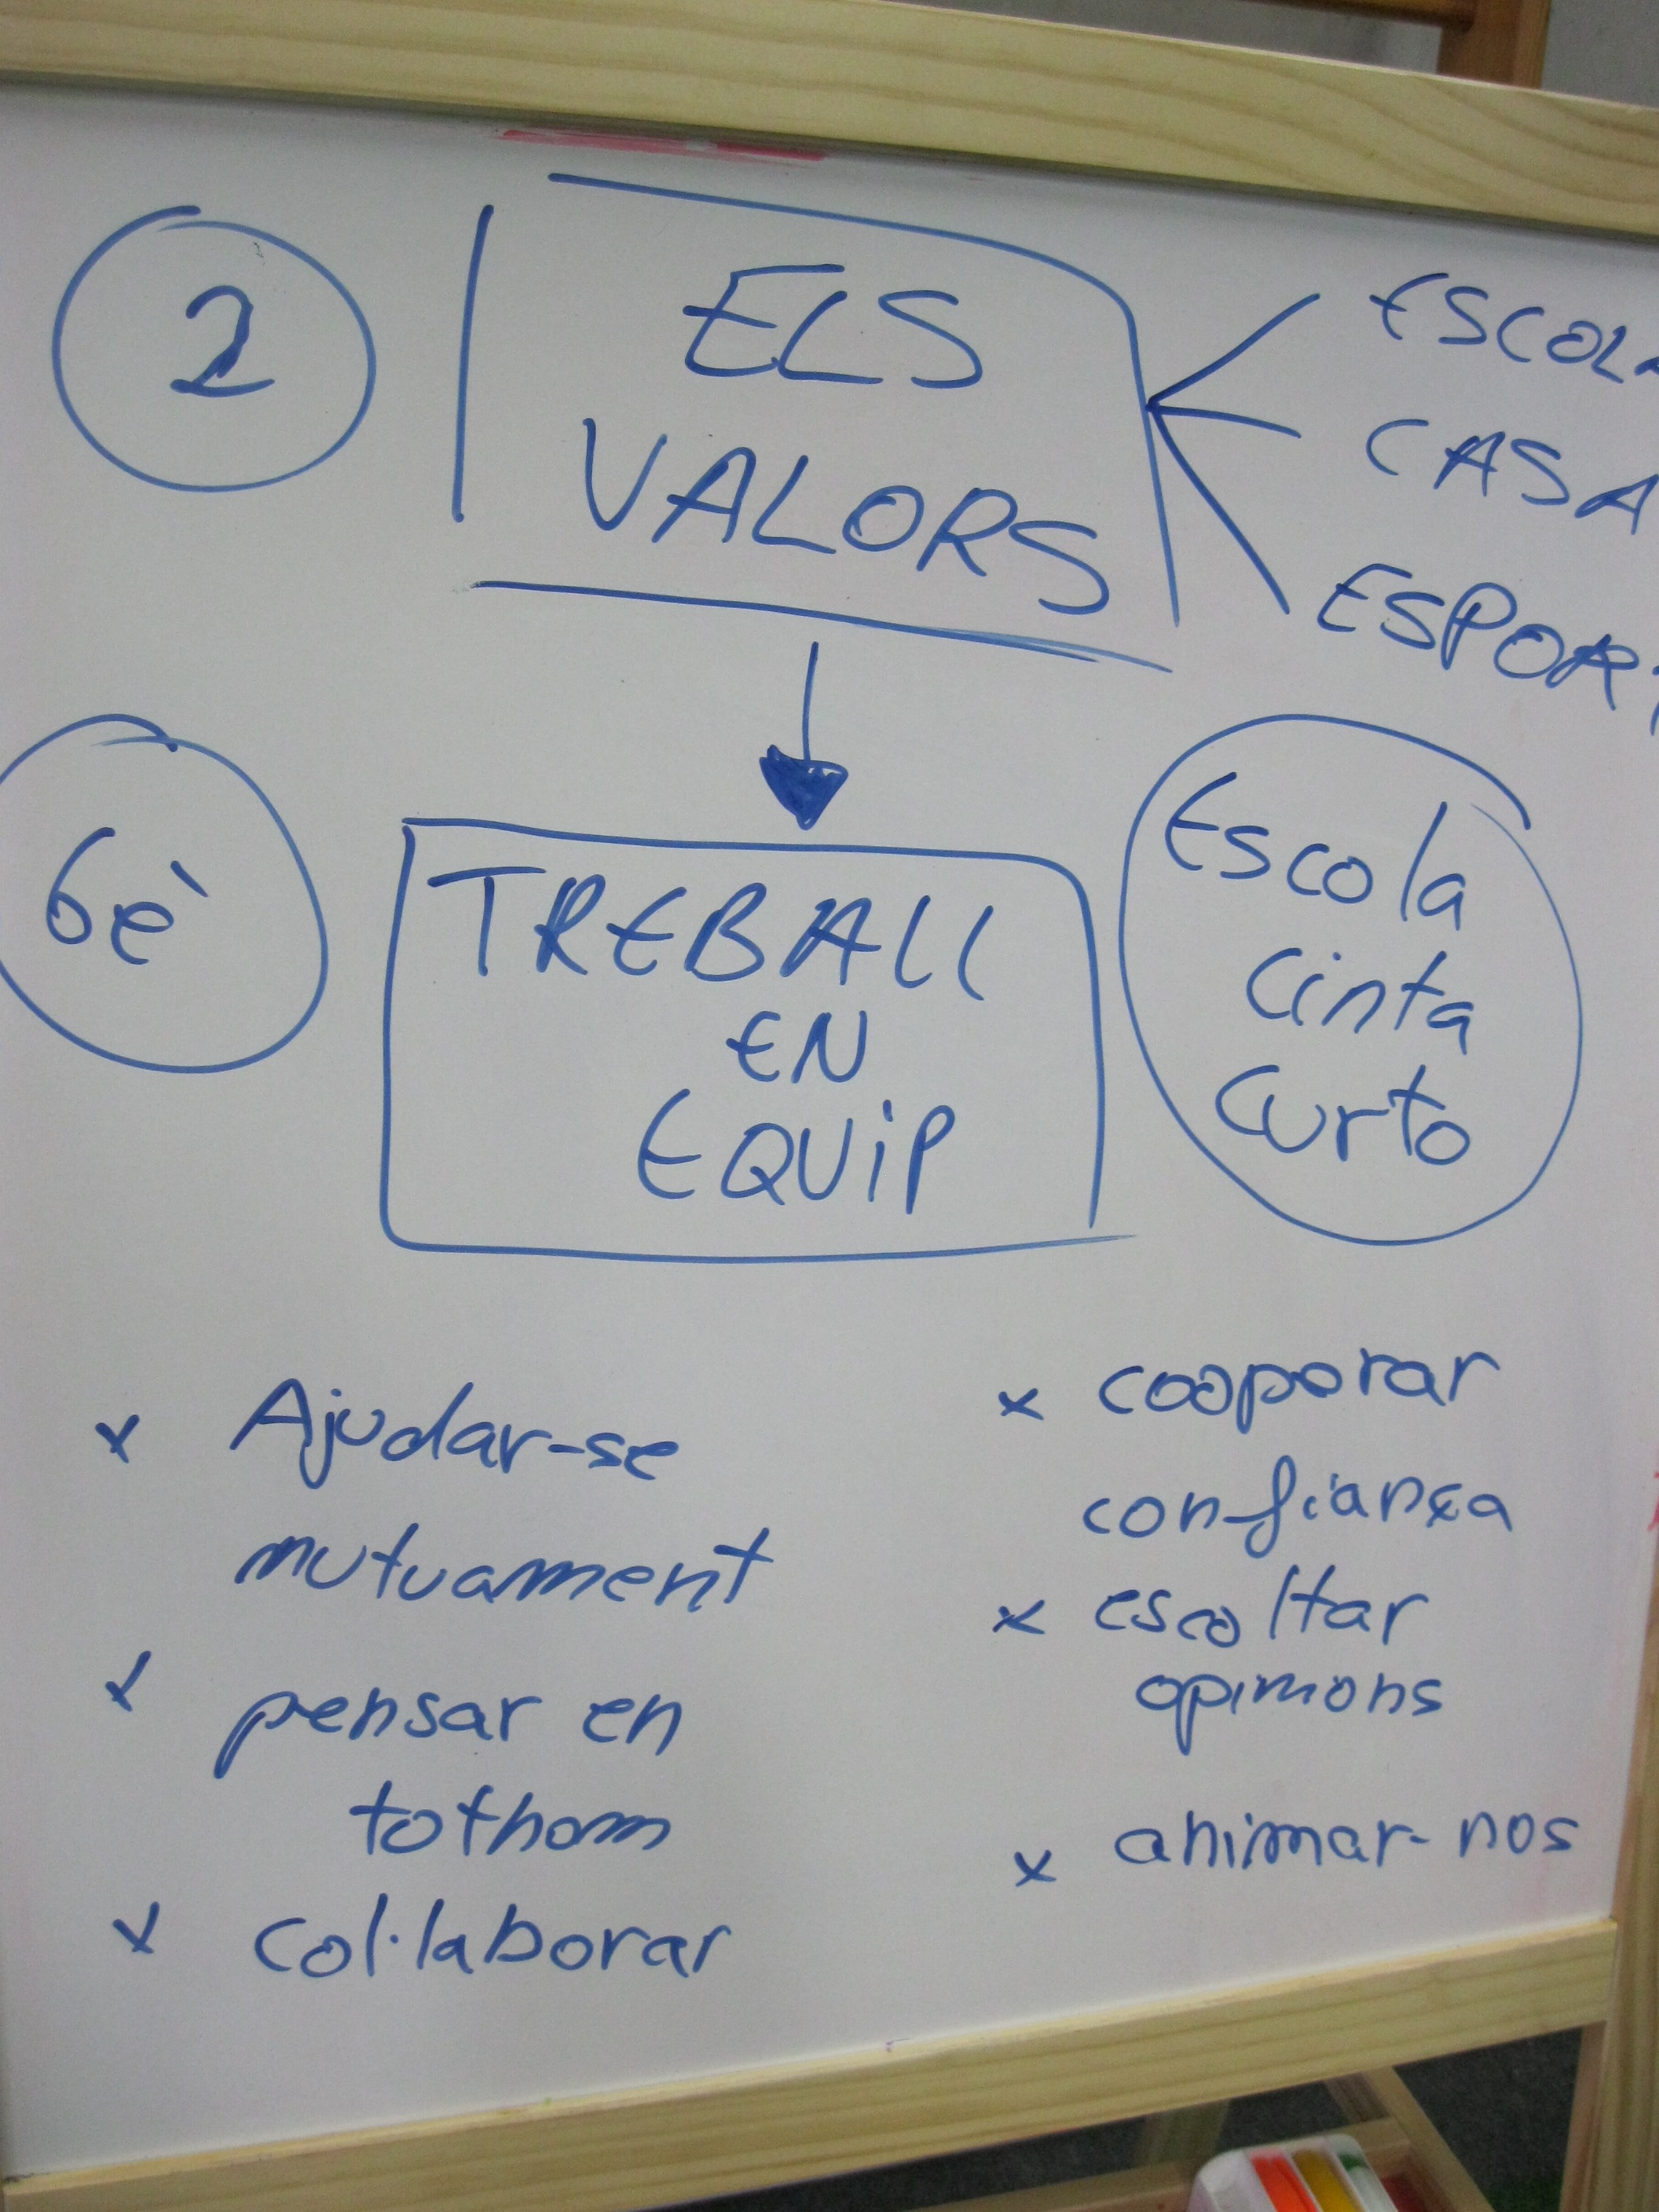 2
ELS
VALORS
ESCOLA
CASA
ESPORT
6è
TREBALL
EN
EQUiP
Escola
Cinta
Curto
x Ajudar-se
mutuament
x pensar en
tothom
x col·laborar
x cooperar
confiança
x escoltar
opinions
x animar-nos